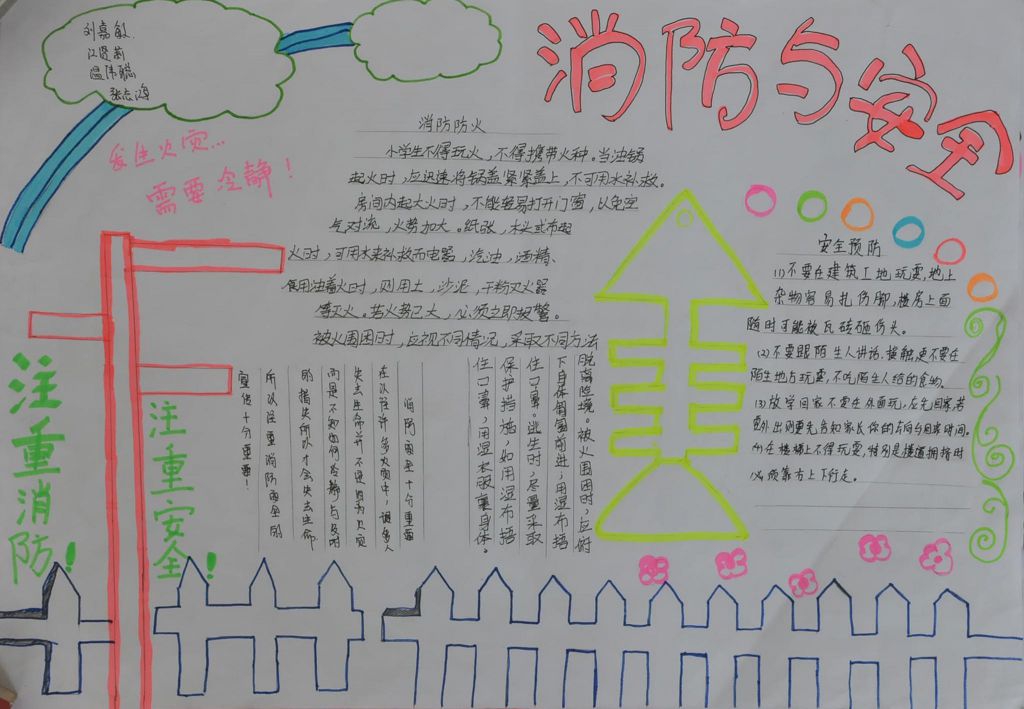 消防与安全
刘嘉敏
江贤莉
温伟聪
张志鸿
发生火灾…
需要冷静！
消防防火
小学生不得玩火，不得携带火种。当油锅
起火时，应迅速将锅盖紧紧盖上，不可用水补救。
房间内起大火时，不能轻易打开门窗，以免空
气对流，火势加大。纸张，木头或布起
火时，可用水来补救而电器，汽油，酒精、
食用油着火时，则用土，沙泥，干粉灭火器
等灭火。若火势已大，必须立即报警。
被火围困时，应视不同情况，采取不同方法
脱离险境。被火围困时，应俯
下自体匍匐前进，用湿布捂
住口鼻。逃生时，尽量采取
保护措施，如用湿布捂
住口鼻，用湿衣服裹身体。
消防安全十分重要
在以往许多火灾中，很多人
失去生命并不是因为火灾
而是不知如何冷静与及时
的措失所以才会失去生命
所以注重消防安全的
宣传十分重要！
安全预防
(1)不要在建筑工地玩耍，地上
杂物容易扎伤脚，楼房上面
随时可能被瓦砖砸伤头。
(2)不要跟陌生人讲话、接触更不要在
陌生地方玩耍，不吃陌生人给的食物。
(3)放学回家不要在外面玩，应先回家，若
要外出则要先告知家长你的去向与回来时间。
(4)在楼梯上不得玩耍，特别是楼道拥挤时
必须靠右上下行走。
注重消防！
注重安全！